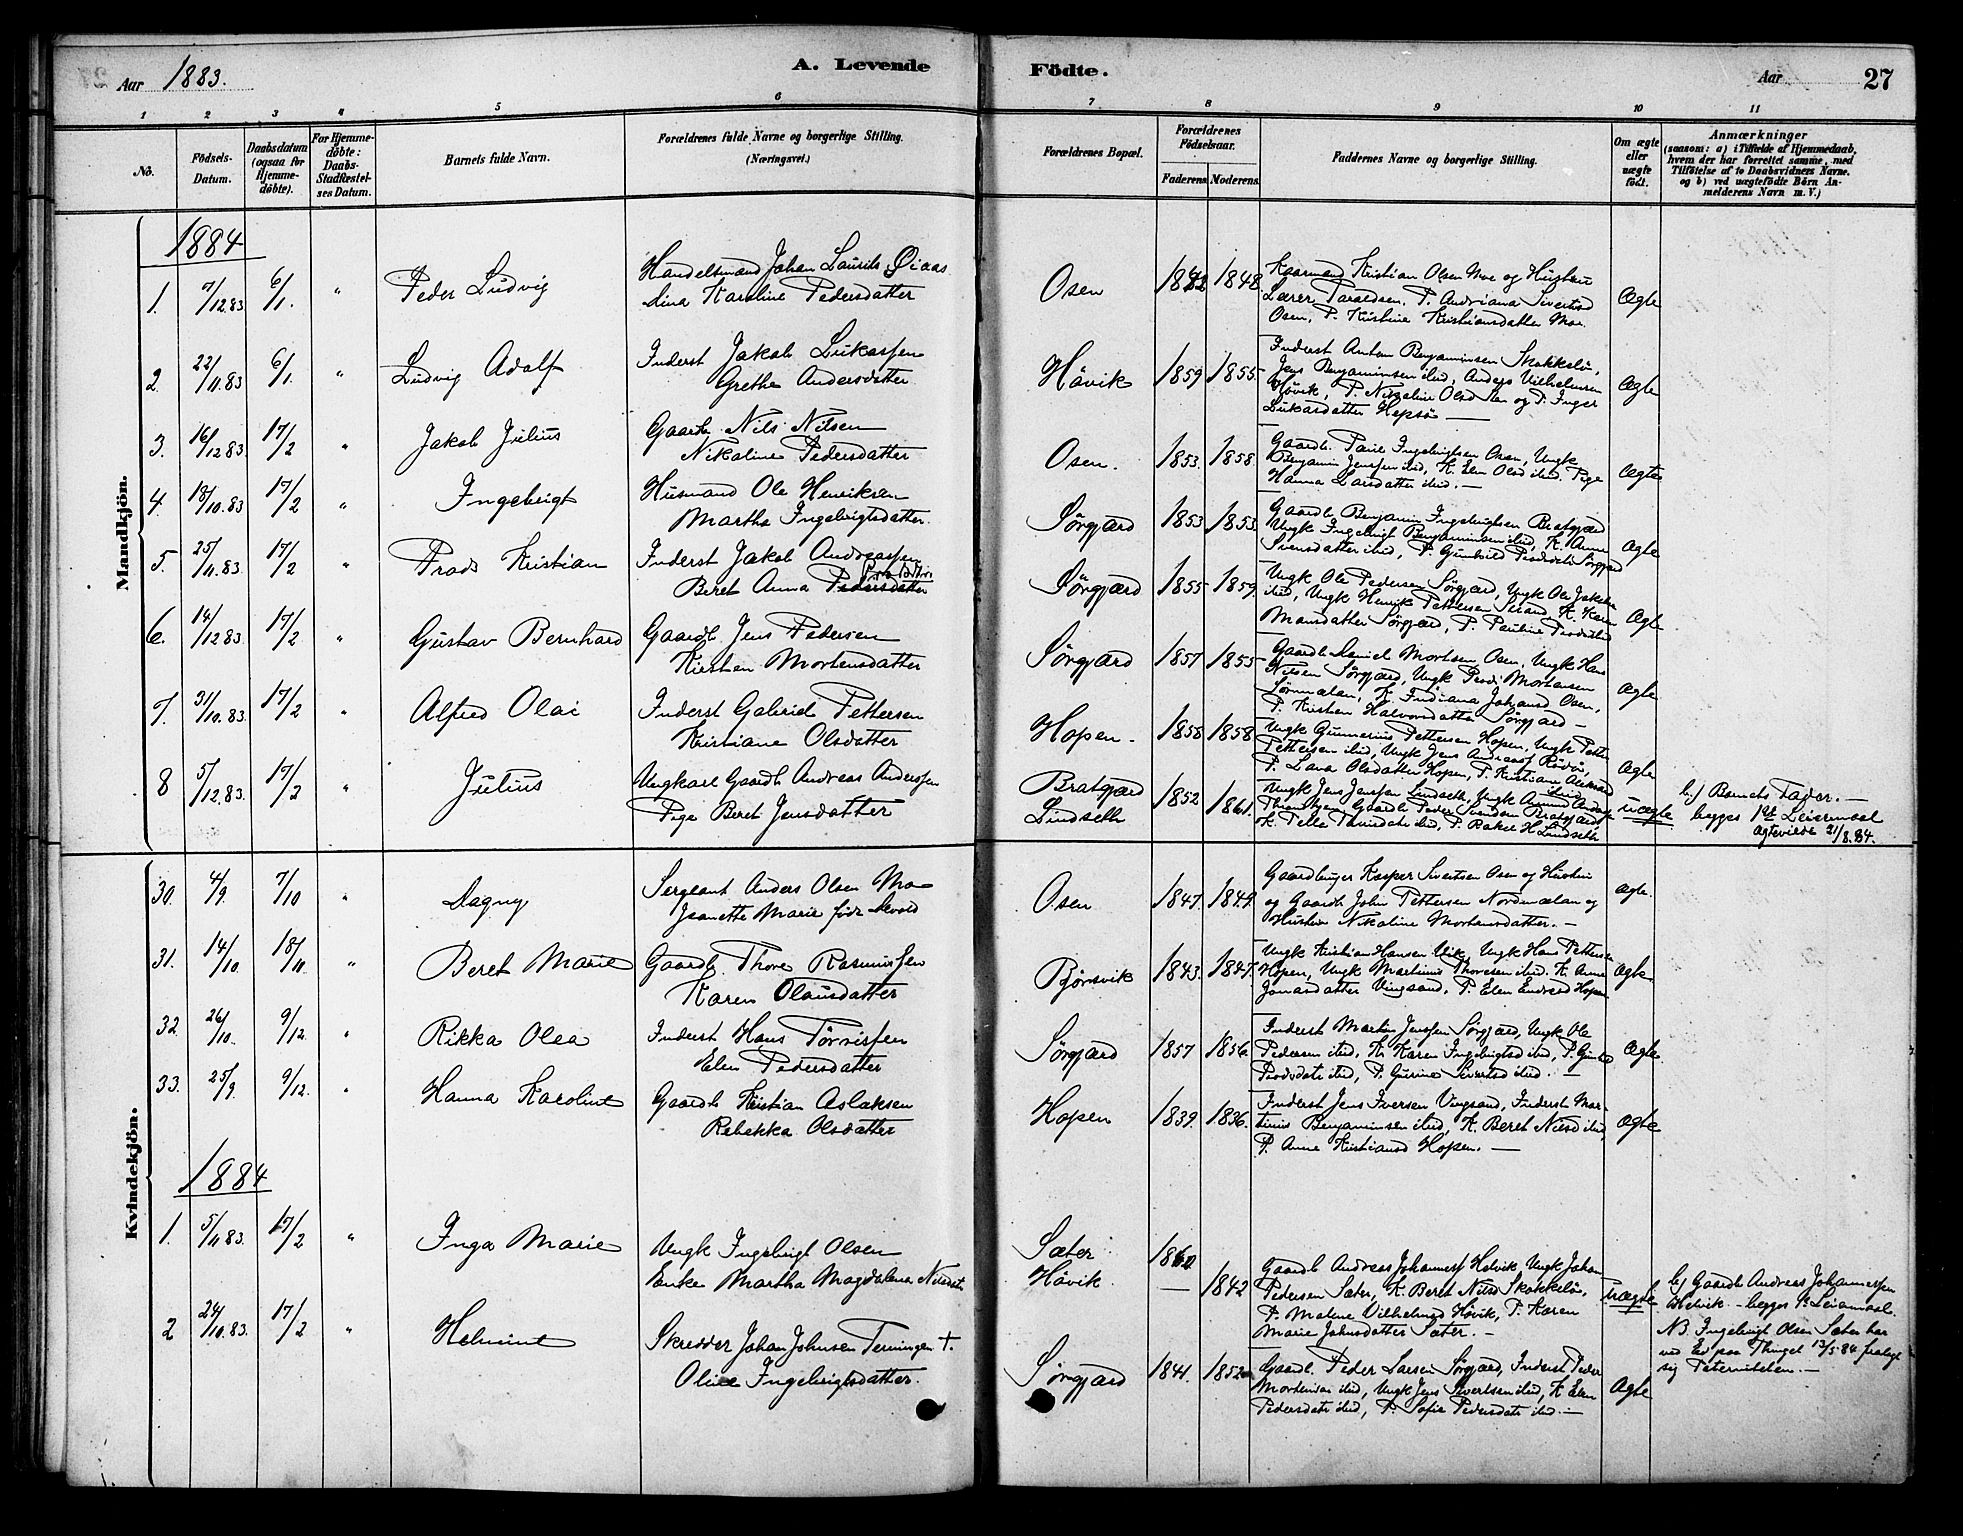 Aar 1883.
A. Levende
Födte.
Aar
27
1 2 3 4 5 6 7 8 9 10 11
No.
Födsels-
Datum.
Daabsdatum
(ogsaa for
Hjemme-
döbte).
For Hjemme-
döbte:
Daabs-
Stadfæstel-
ses Datum.
Barnets fulde Navn.
Forældrenes fulde Navne og borgerlige Stilling.
(Næringsvei.)
Forældrenes Bopæl.
Forældrenes
Födselsaar.
Faderens. Moderens.
Faddernes Navne og borgerlige Stilling.
Om ægte
eller
uægte
födt.
Anmærkninger
(saasom: a) i Tilfælde af Hjemmedaab,
hvem der har forrettet samme, med
Tilföielse af to Daabsvidners Navne.
og b) ved uægtefödte Börn An-
melderens Navn m. V.)
Mandkjön.
1884
1. 7/12.83 6/1. " Peder Ludvig
Handelsmand Johan Laurits Øiaas
Lina Karoline Pedersdatter
Osen 1848.
Kaarmand Kristian Olsen Moe og Hustru
Lærer Taraldsen. P. Andriana Sivertsd
Osen, P. Kristine Kristiansdatter Moe.
Ægte
2. 22/11.83 6/1. " Ludvig Adolf
Inderst Jakob Lukassen
Grethe Andersdatter
Håvik 1859 1855.
Inderst Anton Benjaminsen Skokkelø,
Jens Benjaminsen ibid, Anders Vilhelmsen
Håvik, P. Nikoline Olsd og P. Inger
Lukasdatter Hepsø —
Ægte
3. 16/12.83 17/2 " Jakob Julius
Gaardb. Nils Nilsen
Nikoline Pedersdatter
Osen. 1853. 1858.
Gaardb. Paul Ingebrigtsen Osen, Ungk
Benjamin Jenssen ibid, K. Elen Olsd ibid. Pige
Hanna Larsdatter ibid. —
Ægte
4. 18/10.83 17/2 " Ingebrigt
Husmand Ole Henriksen
Martha Ingebrigtsdatter.
Sørgjærd 1853 1853.
Gaardb Benjamin Ingebrigtsen Bratgjærd
Ungk Ingebrigt Benjaminsen ibid, K. Anne
Svensdatter ibid, P. Gunhild Prodsdatt Sørgjærd
Ægte
5. 25/11.83 17/2 " Prods Kristian
Inderst Jakob Andreassen
Beret Anna Pedersdatter
Sørgjærd 1855 1859.
Ungk Ole Pedersen Sørgjærd, Ungk Ole Jakobs
ibid, Ungk Henrik Pettersen Strand, K. Karn
Monsdatter Sørgjærd, P. Pauline Prodsd ibid
Ægte
6. 14/12.83 17/2 " Gustav Bernhard
Gaardb. Jens Pedersen
Kirsten Mortensdatter
Sørgjærd 1857 1855
Gaardb Daniel Mortsen Osen, Ungk Hans
Nilsen Sørgjærd, Ungk Prods Mortensen
Sørmælan, K. Indiana Johansd Osen,
P. Kristen Halvorsdatter Sørgjærd —
Ægte
7. 31/10.83. 17/2 " Alfred Olai
Inderst Gabriel Pettersen
Kristiane Olsdatter
Hopen. 1858 1858
Ungk Gunnerius Pettersen Hopen, Ungk Petter
Pettersen ibid, Ungk Jens Andreass Rødø,
P. Lava Olsdatter Hopen, P. Kristiane
Ægte
8 5/12.83. 17/2 " Julius
Ungkarl Gaardb Andreas Anderssen
Pige Beret Jensdatter
Bratgjærd
Lindseth
1852 1861.
Ungk Jens Jenssen Lindseth, Ungk
Gaardb Peder Svendsen Bratgjærd,
P. Rakel H. Lindseth
uægte
b.) Barnets Fader. —
begges 1ste Leiermaal
Ægteviede 21/8.84.
Kvindekjön.
30. 4/9. 7/10 " Dagny
Sergeant Anders Olsen Mo
Jeanette Marie født Devold
Osen 1847. 1849.
Gaardbruger Kasper Sivertsen Osen og Hustru
og Gaardb John Pettersen Nordmælan og
Hustru Nikoline Mortensdatter. —
Ægte.
31. 14/10. 18/11. " Beret Marie
Gaardb. Thore Rasmussen
Karen Olausdatter
Bjørsvik 1843. 1847.
Ungk Kristian Hansen Vik, Ungk Hans Pettersen
Hopen, Ungk Martinus Thoresen ibid. K. Anne
Jonasdatter Vingsand, P. Elen Endresd Hopen
Ægte
32. 26/10. 9/12. " Rikka Olea
Inderst Hans Tørrissen
Elen Pedersdatter
Sørgjærd 1857 1856
Inderst Martin Jenssen Sørgjærd, Ungk Ole
Pedersen ibid, K. Karen Ingebrigtsd ibid, P. Gunhild
Prodsdatt ibid, P. Gurine Sivertsd ibid. —
Ægte
33. 25/9. 9/12. " Hanna Karoline
Gaardb Kristian Aslaksen
Rebekka Olsdatter
Hopen 1839. 1836.
Inderst Jens Iversen Vingsand, Inderst Mar-
tinus Benjaminsen ibid, K. Beret Nilsd ibid,
P. Anne Kristiansd Hopen. —
Ægte
1884
1. 5/11.83. 17/2 " Inga Marie
Ungk Ingebrigt Olsen
Enke Martha Magdalena Nilsdat
Sæter
Håvik.
1860
— 1842
Gaardb Andreas Johanness Hovik, Ungk Johan
Pedersen Sæter, K. Beret Nilsd Skokkelø,
P. Malene Vilhelmsd Håvik, P. Karen
Marie Johnsdatter Sæter. —
uægte
b) Gaardb Andreas Johannessen
Hovik — begges 1ste Leiermaal.
NB. Ingebrigt Olsen Sæter har
ved Ed paa Thinget 13/5.84 fralagt
sig Paterniteten. —
2 24/10.83. 17/2 " Helmine
Skredder Johan Johnsen Terningen †.
Olise Ingebrigtsdatter.
Sørgjærd 1841. 1852
Gaardb. Peder Larsen Sørgjærd, Inderst Peder
Mortensen ibid, Ungk Jens Sivertsen ibid, K. Elen
Pedersdatt ibid, P. Sofie Pedersdatt ibid. —
Ægte